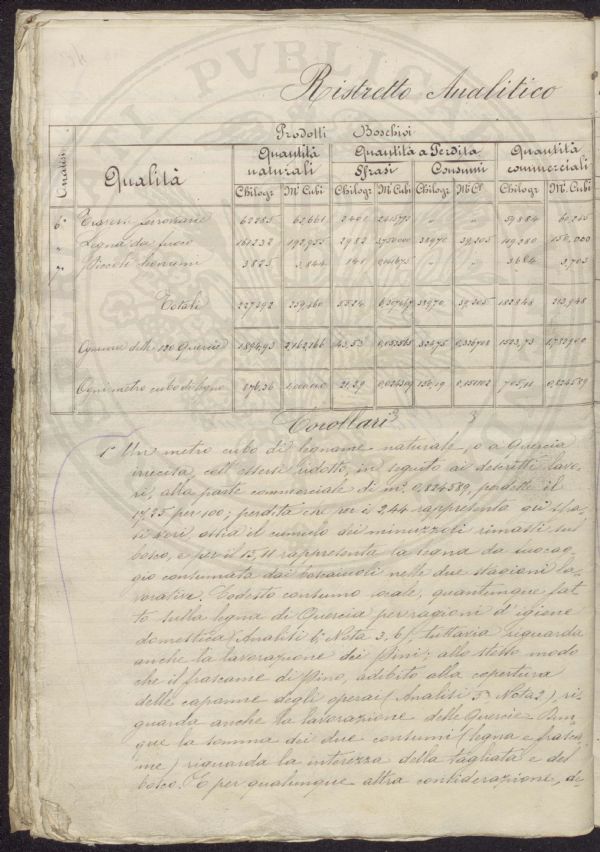 Ristretto Analitico
Prodotti Boschivi
Analisi Qualità Quantità naturali Quantità a Perdita Quantità commerciali
Sfrasi Consumi
Chilogr. Mi Cubi Chilogr. Mi Cubi Chilogr. Mi Ci Chilogr. Mi Cubi
6a Traversi ferroviarie 62285 62,661 2401 59884
" Legna da fuoco 161232 192,955 2982 38970 39,205 119280 150,000
" Piccoli legnami 3825 3,844 141 3684 3,703
Totali 227342 259,460 5524 38970 39,205 182848 213,948
Ognuna delle 120 Quercie 1894,93 2,162166 324,75 0,326708 1523,73
Ogni metro cubo di legno 876,36 1,000000 21,29 0,151102 705,11 0,824589
Corollari
1° Un metro cubo di legname naturale, o a Quercia
irrecisa, coll'essersi ridotto, in seguito ai descritti lavo-
ri, alla parte commerciale di mc. 0,824589, perdette il
17,55 per 100; perdita che per i 2,44 rappresenta gli sfra-
si veri, ossia il cumulo dei minuzzoli rimasti sul
bosco, e per il 15,11 rappresenta la legna da
consumata dai boscaiuoli nelle due stagioni la-
vorative. Codesto consumo reale, quantunque fat-
to sulla legna di Quercia per ragioni d'igiene
domestica (Analisi 6a Nota 3. b), tuttavia riguarda
anche la lavorazione dei Pini; allo stesso modo
che il frascame di Pino, adibito alla copertura
delle capanne degli operai (Analisi 5a Nota 2) ri-
guarda anche la lavorazione delle Quercie. Dun-
que la somma dei due consumi (legna e frasca-
me) riguarda la interezza della tagliata e del
bosco. E per qualunque altra considerazione, de-